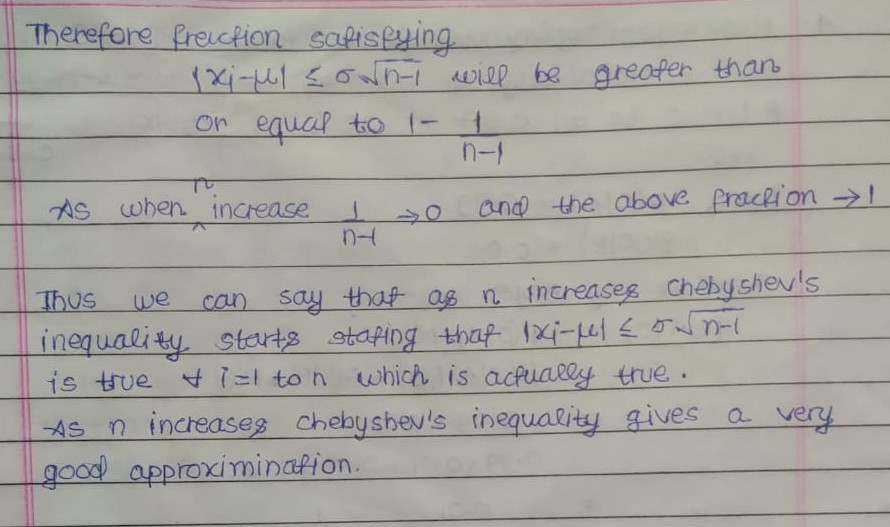 Therefore freuction satisfying
|xi-μ| ≤ σ√n-1 will be greater than
or equal to 1 - 1/n-1
As when n increase 1/n-1 → 0 and the above fraction → 1
Thus we can say that as n increases chebyshev's
inequality starts stating that |xi-μ| ≤ σ√n-1
is true ∀ i=1 to n which is actually true.
As n increases chebyshev's inequality gives a very
good approximination.